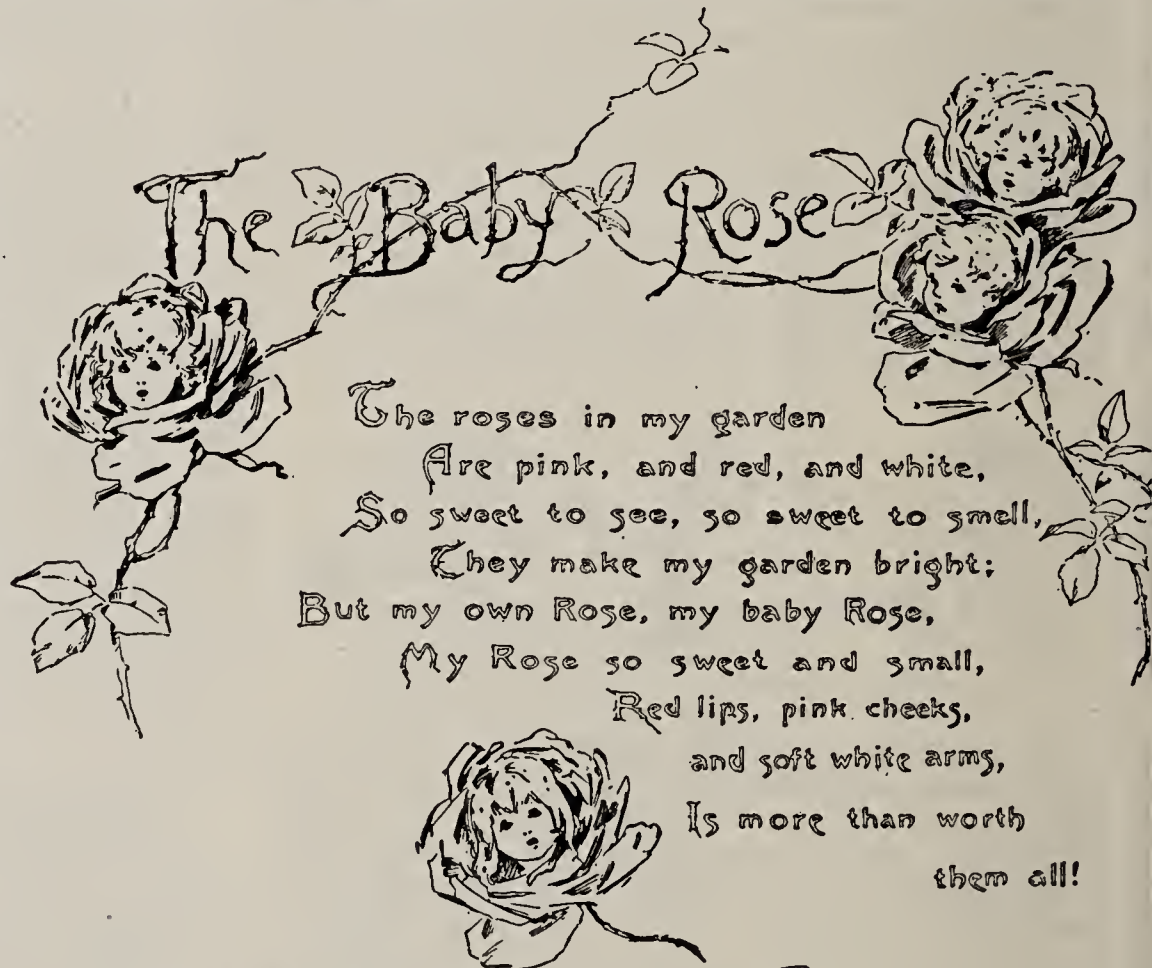 The Baby Rose
The roses in my garden
Are pink, and red, and white,
So sweet to see, so sweet to smell,
They make my garden bright;
But my own Rose, my baby Rose,
My Rose so sweet and small,
Red lips, pink cheeks,
and soft white arms,
Is more than worth
them all!